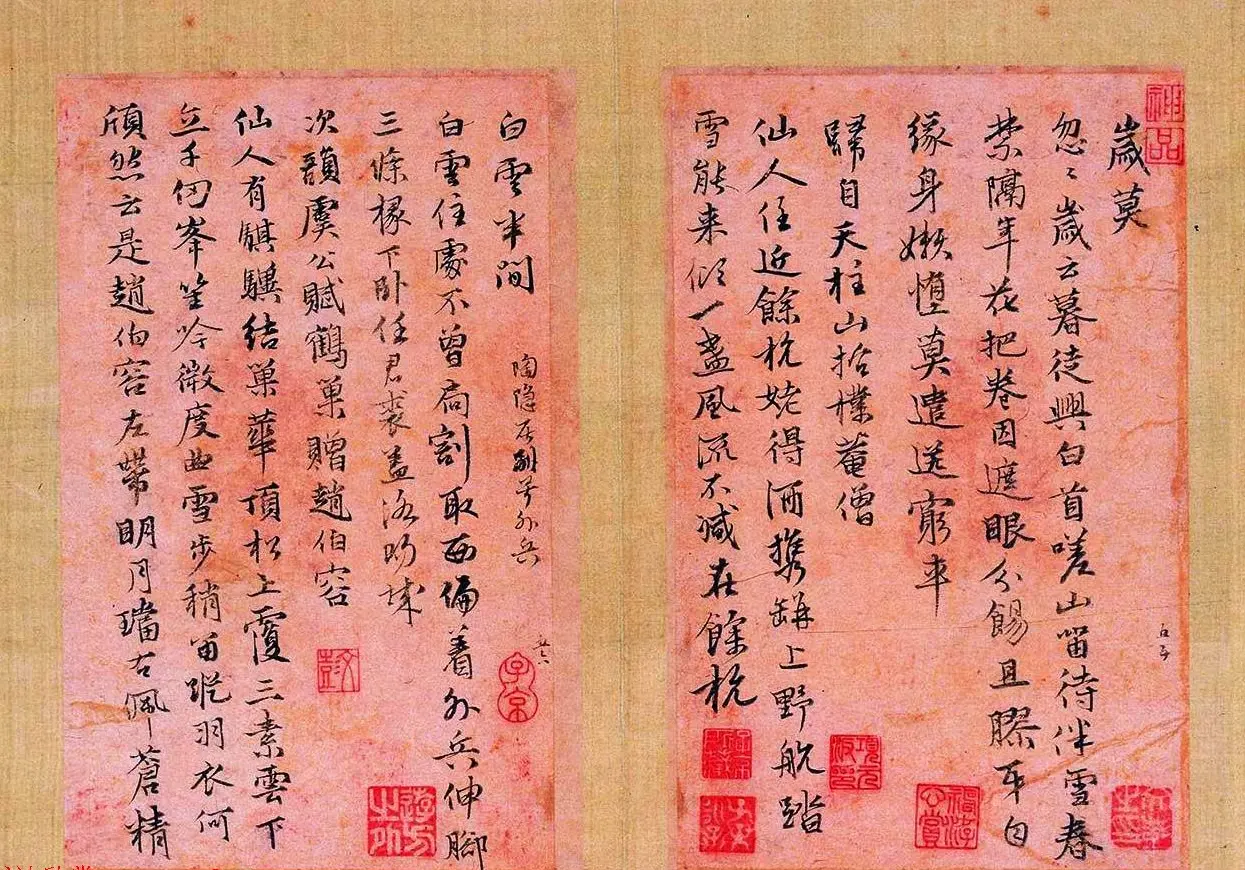 神品
歲莫
忽〻歲云暮徒興白首嗟山留待伴雪春
禁隔年花把卷因遮眼分餳且膠牙自
緣身嬾惰莫遣送窮車
歸自天柱山拾櫟菴僧
仙人住近餘杭姥得酒攜缾上野航踏
雪能来傾一盞風流不减在餘杭
白雲半間
陶隐居别号外兵
子京
白雲住處不曾扃割取西偏着外兵伸腳
三條椽下卧任君裘蓋洛陽城
次韻虞公賦鶴巢贈趙伯容
仙人有騏驥結巢華頂松上覆三素雲下
立千仞峯笙吟微度曲雪步稍留蹤羽衣何
頎然云是趙伯容左帶明月璫右佩蒼精